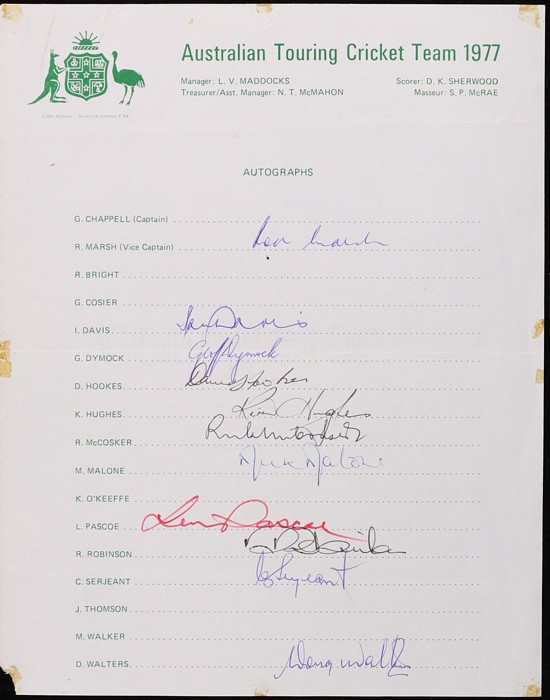 Australian Touring Cricket Team 1977
Manager: L. V. MADDOCKS Scorer: D. K. SHERWOOD
Treasurer/Asst. Manager: N. T. McMAHON Masseur: S. P. McRAE
AUTOGRAPHS
G. CHAPPELL (Captain)
R. MARSH (Vice Captain) Rod Marsh
R. BRIGHT
G. COSIER
I. DAVIS Ian Davis
G. DYMOCK Geoff Dymock
D. HOOKES David Hookes
K. HUGHES Kim Hughes
R. McCOSKER Rick McCosker
M. MALONE Mick Malone
K. O'KEEFFE
L. PASCOE Len Pascoe
R. ROBINSON R D Robinson
C. SERJEANT C Serjeant
J. THOMSON
M. WALKER
D. WALTERS Doug Walters